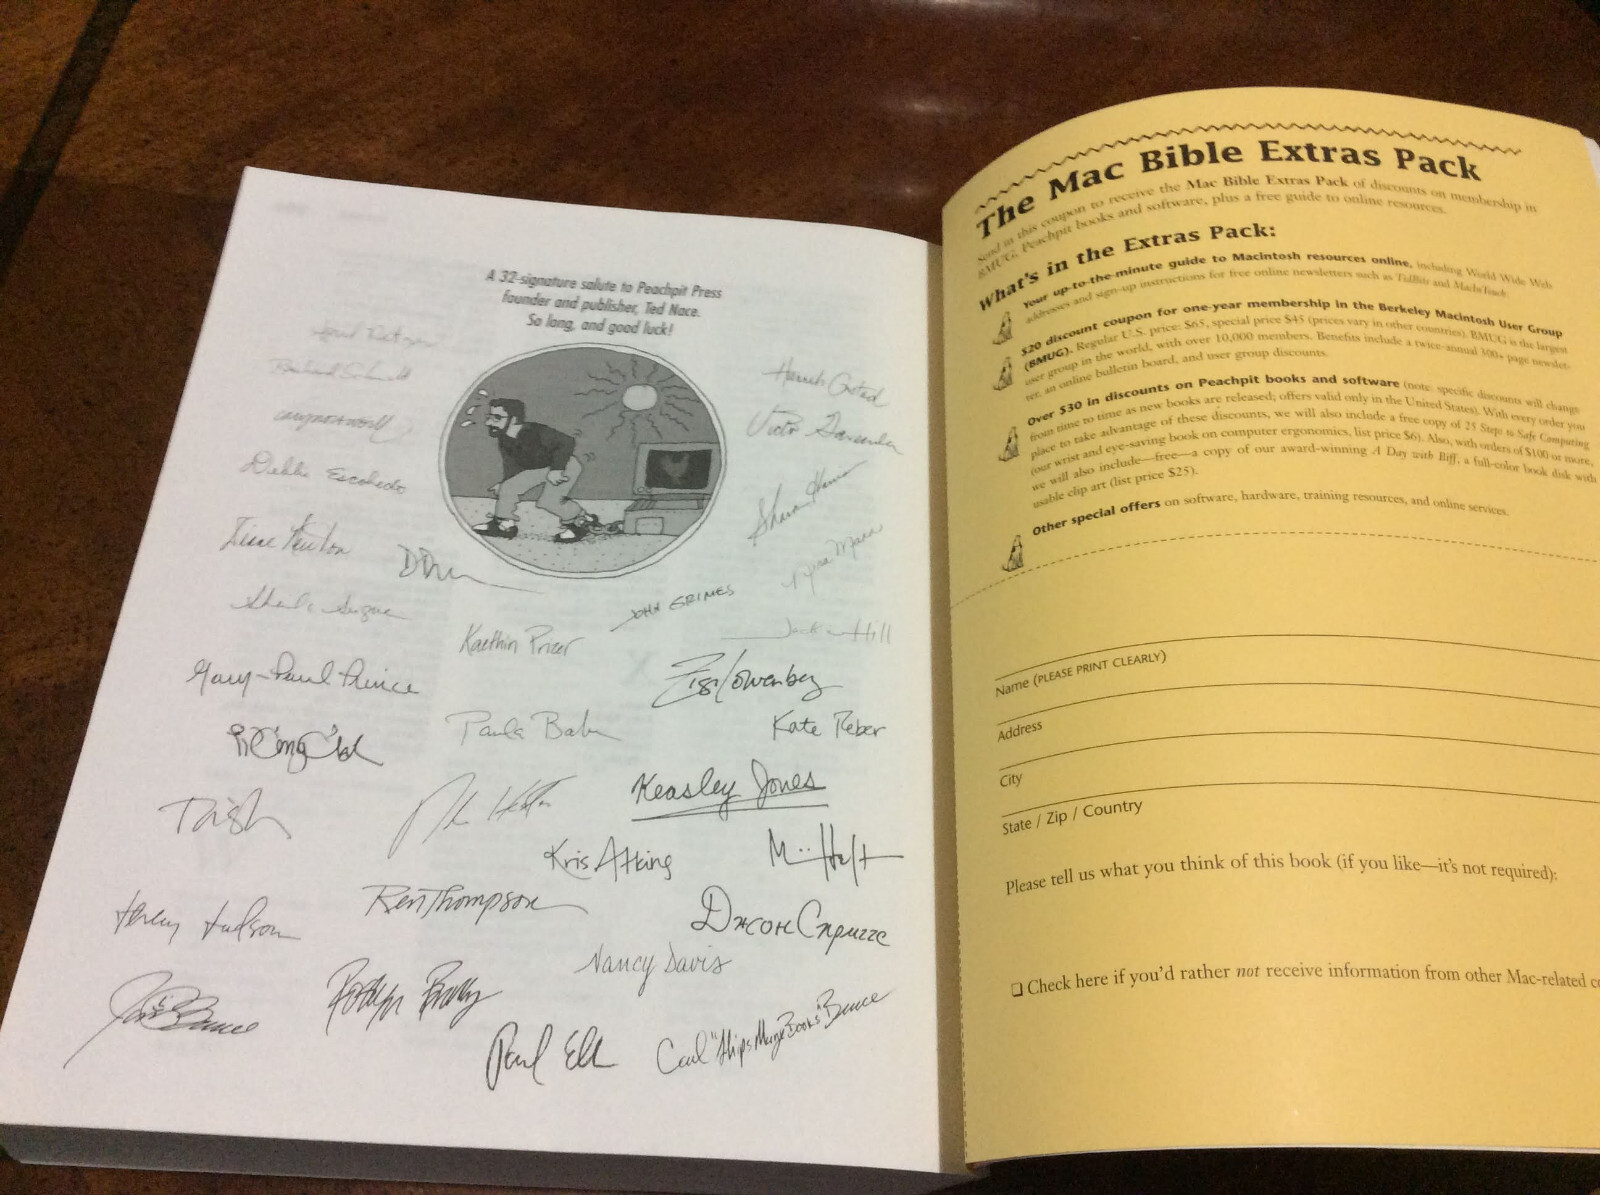 A 32-signature salute to Peachpit Press
founder and publisher, Ted Nace.
So long, and good luck!
Debbie Escobedo
JOHN GRIMES
Kaethin Prizer
Gary-Paul Prince
Zigi Lowenberg
Paula Baker
Kate Reber
Trish
Keasley Jones
Kris Atkins
Jeremy Judson
Ren Thompson
Джон
Nancy Davis
Roslyn Bullas
Paul
Carl Bruce
The Mac Bible Extras Pack
Send in this coupon to receive the Mac Bible Extras Pack of discounts on membership in
BMUG, Peachpit books and software, plus a free guide to online resources.
What's in the Extras Pack:
Your up-to-the-minute guide to Macintosh resources online, including World Wide Web
addresses and sign-up instructions for free online newsletters such as TidBits and MacInTouch.
$20 discount coupon for one-year membership in the Berkeley Macintosh User Group
(BMUG). Regular U.S. price: $65, special price $45 (prices vary in other countries). BMUG is the largest
user group in the world, with over 10,000 members. Benefits include a twice-annual 300+ page newslet-
ter, an online bulletin board, and user group discounts.
Over $30 in discounts on Peachpit books and software (note: specific discounts will change
from time to time as new books are released; offers valid only in the United States). With every order you
place to take advantage of these discounts, we will also include a free copy of 25 Steps to Safe Computing
(our wrist and eye-saving book on computer ergonomics, list price $6). Also, with orders of $100 or more,
we will also include—free—a copy of our award-winning A Day with Biff, a full-color book disk with
usable clip art (list price $25).
Other special offers on software, hardware, training resources, and online services.
Name (PLEASE PRINT CLEARLY)
Address
City
State / Zip / Country
Please tell us what you think of this book (if you like—it's not required):
❑ Check here if you'd rather not receive information from other Mac-related